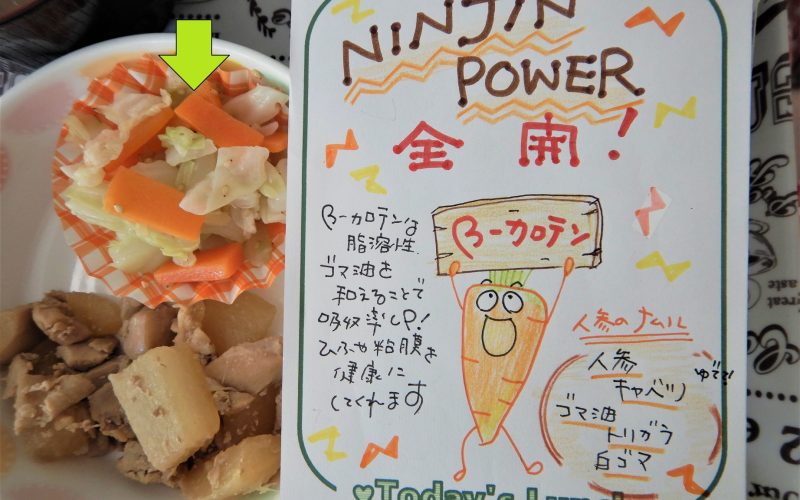 NINJIN
POWER
全開!
β-カロテンは
脂溶性
ゴマ油を
和えることで
吸収率UP!
ひふや粘膜を
健康に
してくれます
β-カロテン
人参のナムル
人参
キャベツ
ゆでる
ゴマ油
トリガラ
白ゴマ
♥Today's